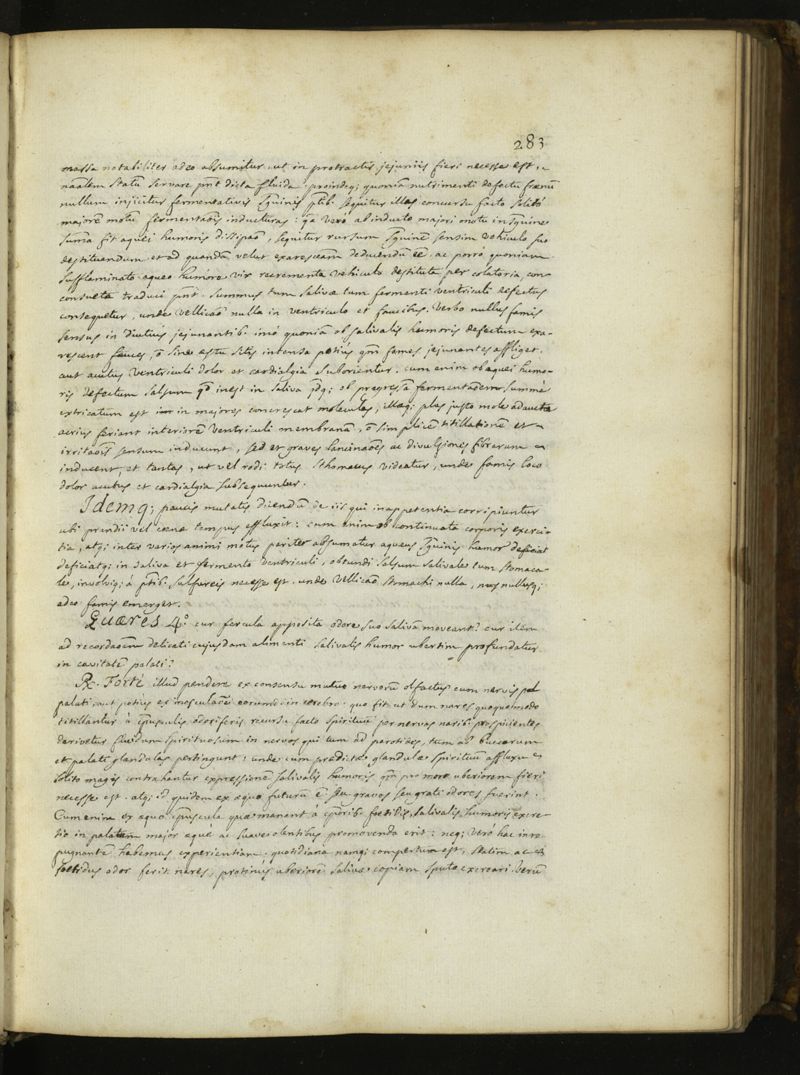 283
massa notabiliter adeo absumitur, ut in protractis jejuniis fieri necesse est,
nãalem statũ servare pñt dicta fluida. proindeq; quoniã nutrimenti defectu frænũ
nullum injicitur fermentativis sguinis ptib. sequitur illas concursu facto solitó
majorẽ motũ fermentaõis inducturas: qa veró ab inducto majori motu in sguine
suma fit aquei humoris dissipaõ, sequitur rursum sguinẽ sensim vehiculo suo
destituendum et ad quandã velut exarescẽam deducendũ ẽẽ. ac porró quoniam
sufflaminato aqueo humóre vix recrementa vehiculo destituta per colatoria, con
consueta traduci pñt. summus tum salivæ tum fermenti ventriculi defectus
consequetur, unde vellicaõ nulla in ventriculo et faucibus. Verbo nullus famis
sensus in diutius jejunantib. imó quoniã ob salivalis humoris defectum exa-
rescent fauces, õ sine æstu sitis intensa potius qm̃ fames jejunantes affliget.
aut acutus ventriculi dolor et cardialgia suborientur. cum enim ob aquei humo-
ris defectum salsum qd inest in saliva pdq; ob progressã fermentaõem summé
extricatum est in majores concrescat moleculas, illæq; plus justo mole adauctæ
acrius feriant interiorẽ ventriculi membranã, õ simplicẽ titillationẽ et
irritaõis sensum inducunt, sed et graves lancinaões ac divulsiones fibrarum
inducent, et tantas, ut vel rodi totus sthomacus videatur, unde famis loco
dolor acutus et cardialgia subsequuntur.
Idemq; paucis mutatis dicendũ de iis qui inappetentia corripiuntur
ubi prandii vel cœnæ tempus effluxit: cum enim ob continuata corporis exerci-
tia, atq; inter varios animi motus pariter absumatur aqueus sguinis humor
deficiatq; in saliva et fermento ventriculi, obtundi salsum salivale tum stomaca-
le, involviq; á ptib. sulfureis necesse est. unde vellicaõ stomachi nulla, nullusq;
adeo famis emerget.
Quæres 4.º cur fercula apposita odore suo salivã moveant? cur itẽm
ad recordaõem delicati cujusdam alimenti salivalis humor ubertim profundatur
in cavitatẽ palati?
℞. Forté illud pendere ex consensu mutuo nervorũ olfactus cum nervis
palati aut potius ex eorumdem in cerebro. quo fit, ut dum nares quoquomodo
titillantur á cpusculis odoriferis recursu facto spirituũ per nervos narib. prospicientes
derivetur fluidum spirituosum in nervos qui tum ad parotides, tum ad buccarum
et palati glandulas pertingunt: unde cum prædictæ glandulæ spirituũ affluxu
solito magis contrahantur expressionẽ salivalis humoris qm̃ pro more uberiorem fieri
necesse est. atq; id quidem ex æquo futurũ ẽ seu graves seu grati odores fuerint.
Cum enim ex æquo cpuscula quæ manant á cporibꝰ fœtidis, salivalis humoris excre-
tio in palatum major æqué ac suaveolentibus promovenda erit: neq; veró hac in re
pugnantẽ habemus experientiam. quotidiana namq; compertum est, statim ac
fœtidus odor ferit nares, protinús uberiorẽ salivæ copiam sputo excreari. Verũ